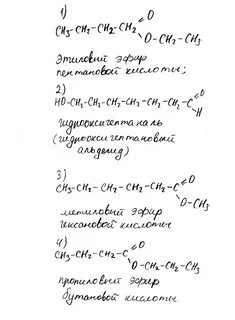 1)
O
CH₃-CH₂-CH₂-CH₂
O-CH₂-CH₃
Этиловый эфир
пентановой кислоты;
2)
HO-CH₂-CH₂-CH₂-CH₂-CH₂-CH₂-C
O
H
гидроксигептаналь
(гидроксигептановый
альдегид)
3)
CH₃-CH₂-CH₂-CH₂-CH₂-C
O
O-CH₃
метиловый эфир
гексановой кислоты
4)
CH₃-CH₂-CH₂-C
O
O-CH₂-CH₂-CH₃
пропиловый эфир
бутановой кислоты